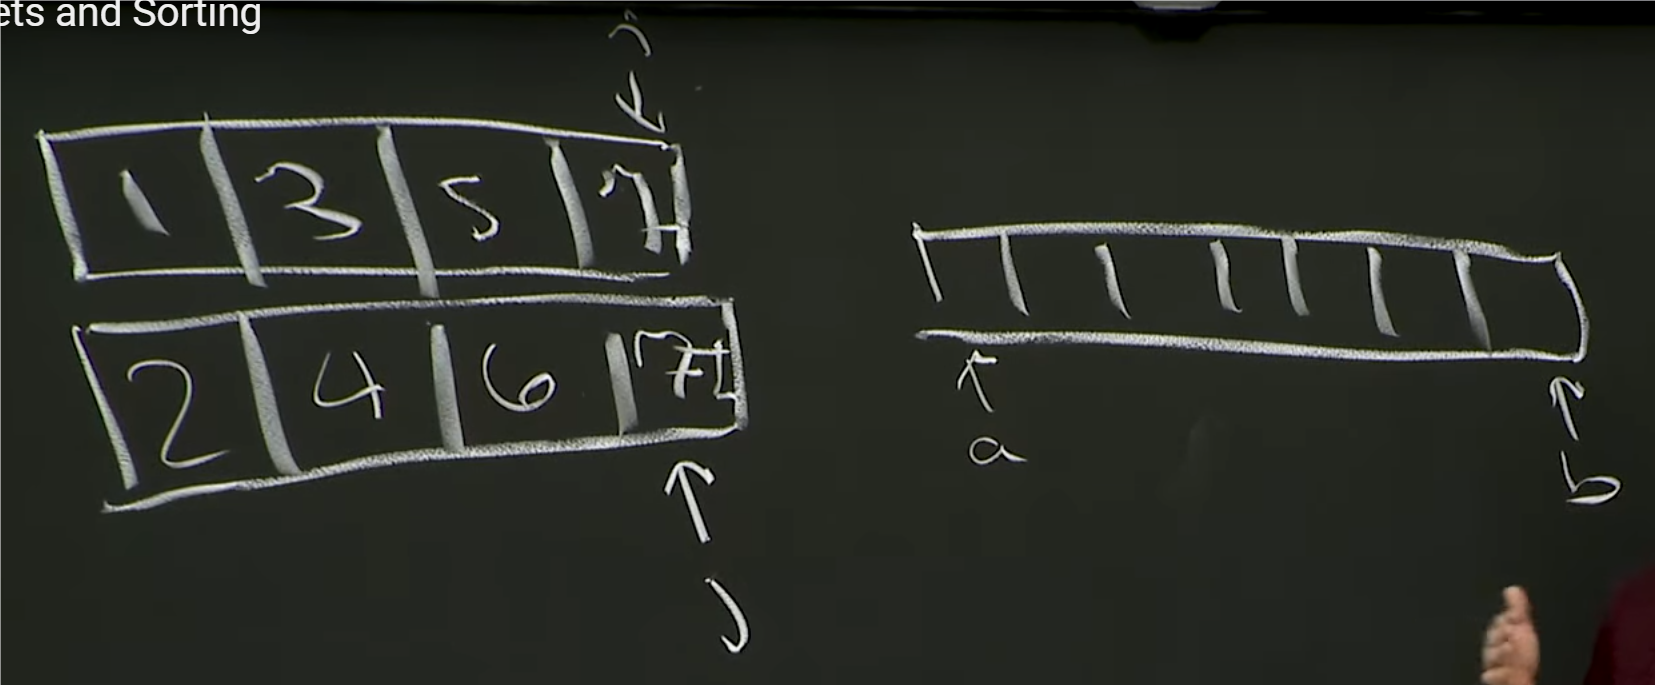 ets and Sorting
1 3 5 7
2 4 6 7
j
a
b